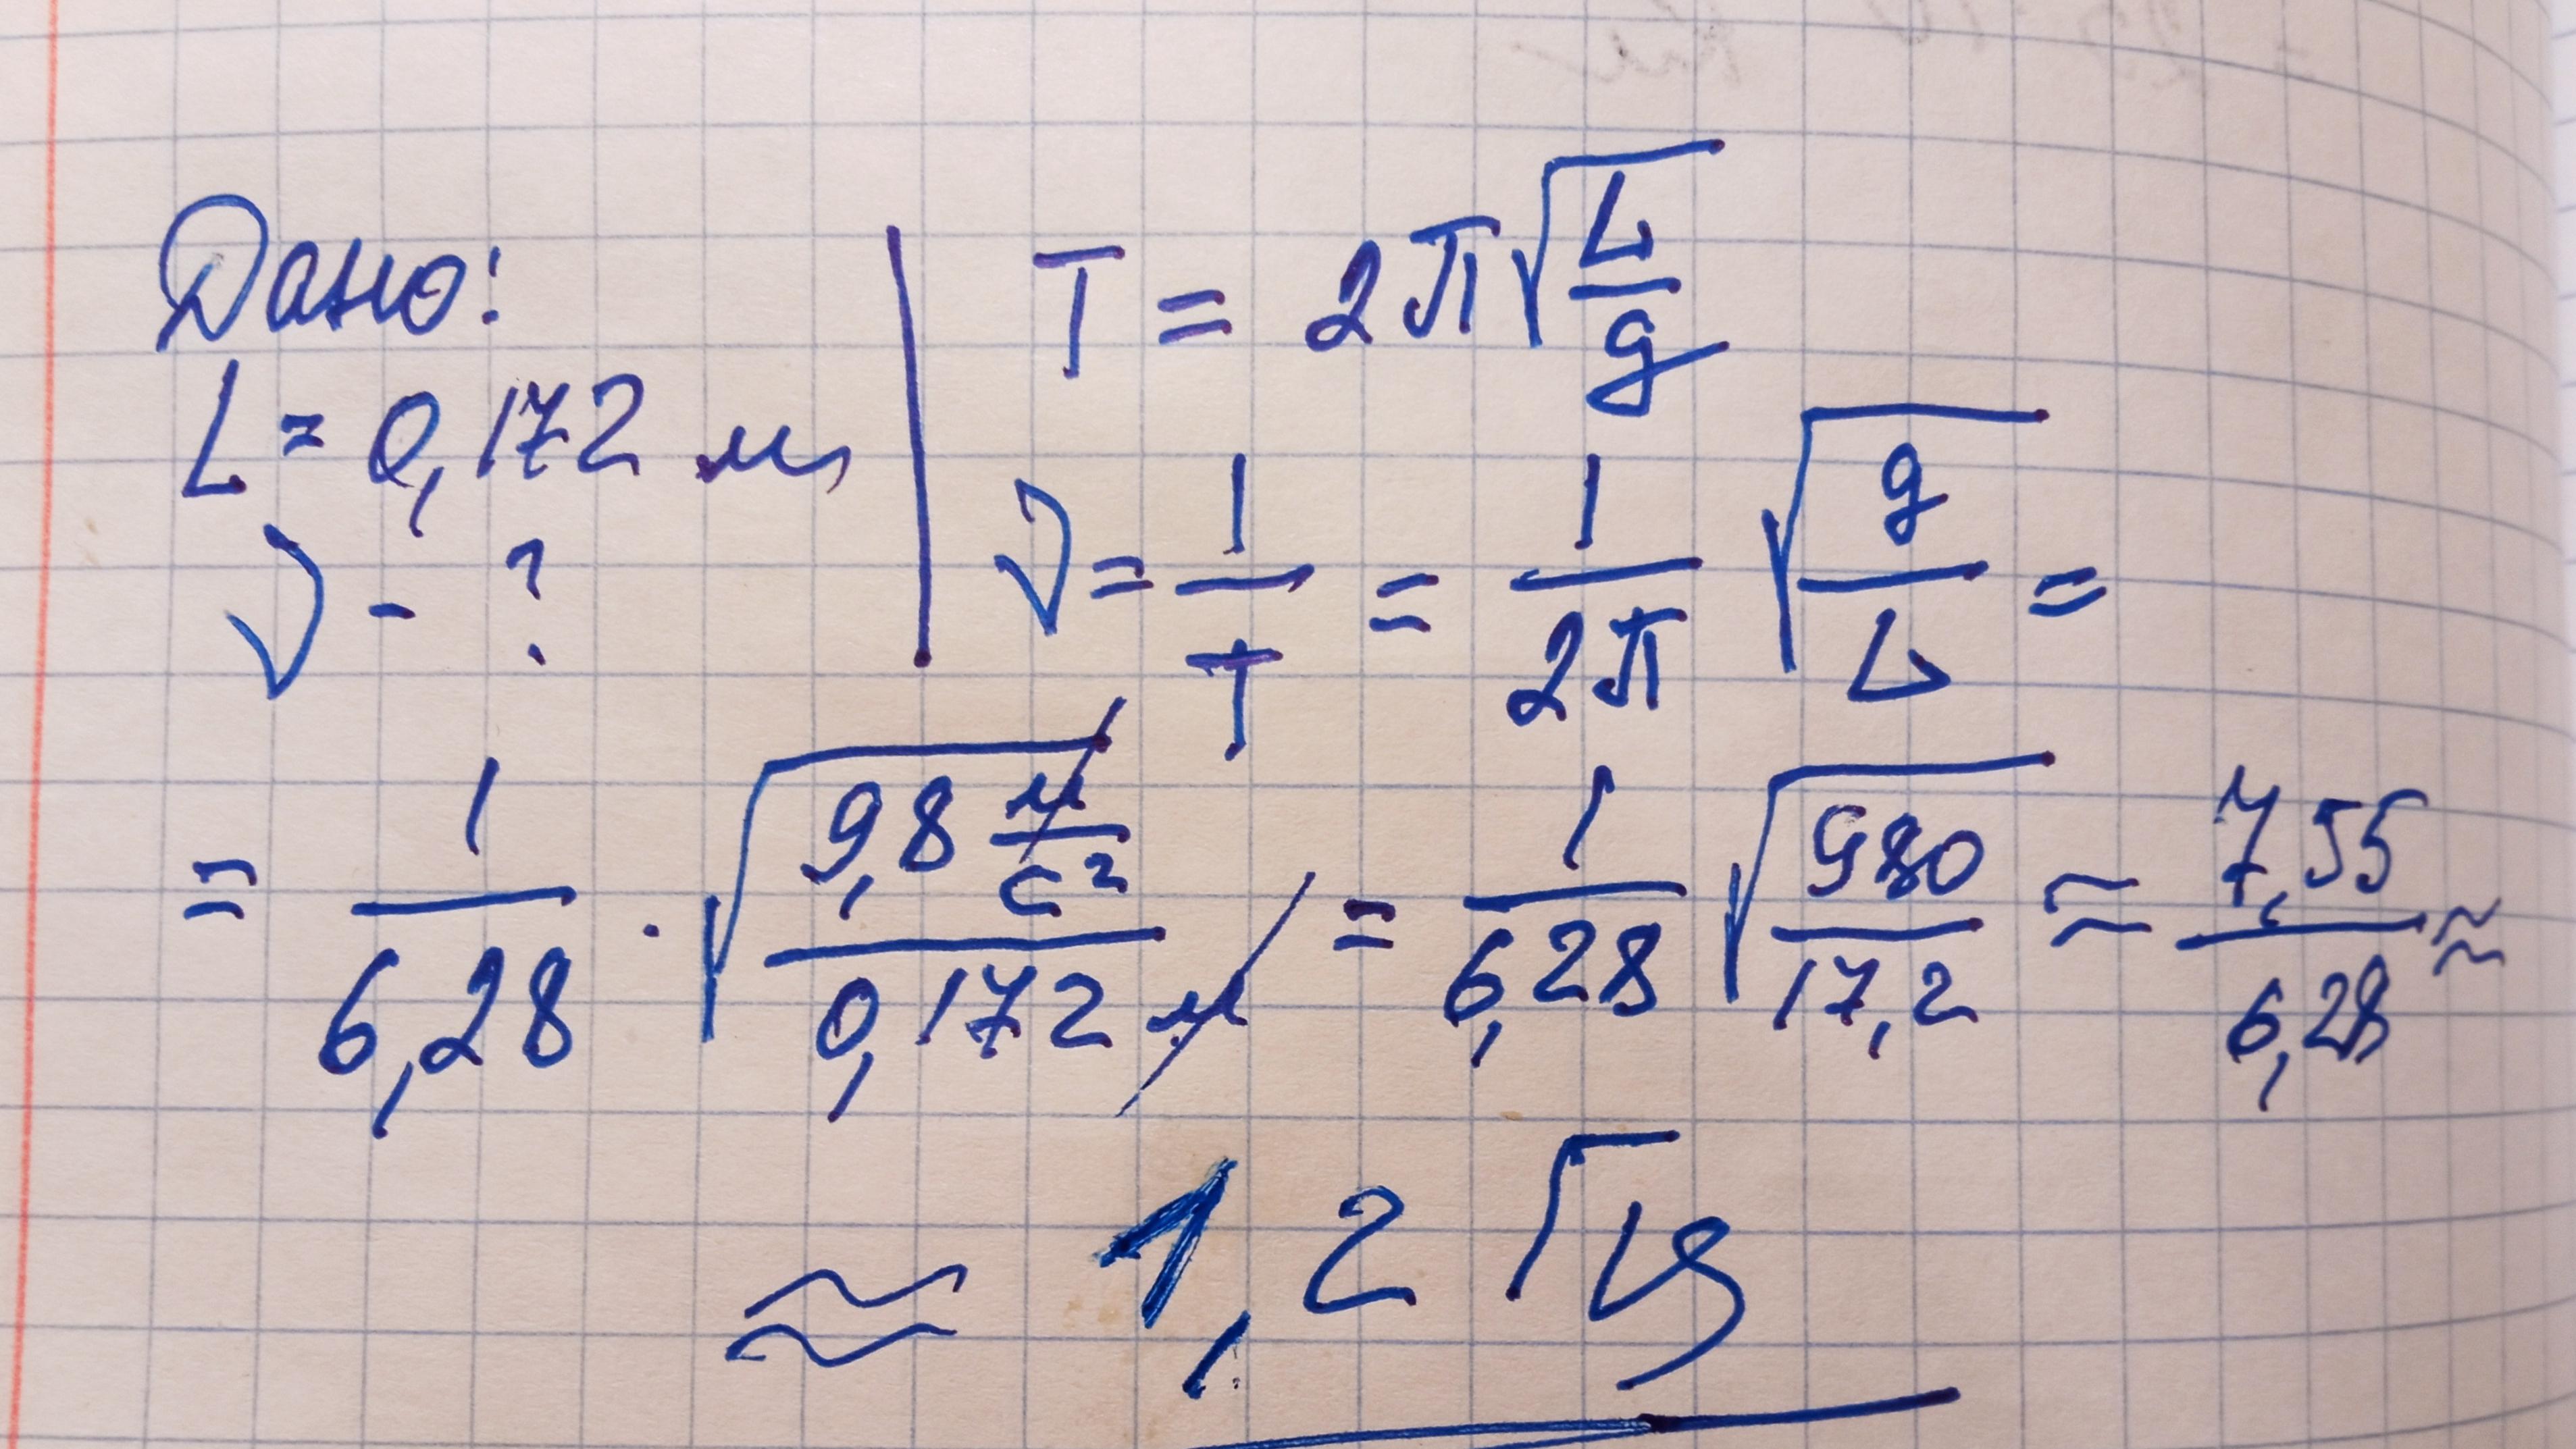 Дано:
L = 0,172 м
ν - ?
T = 2π√(L/g)
ν = 1/T = 1/2π √(g/L) =
= 1/6,28 · √(9,8 м/с² / 0,172 м) = 1/6,28 √(980/17,2) ≈ 7,55/6,28 ≈
≈ 1,2 Гц